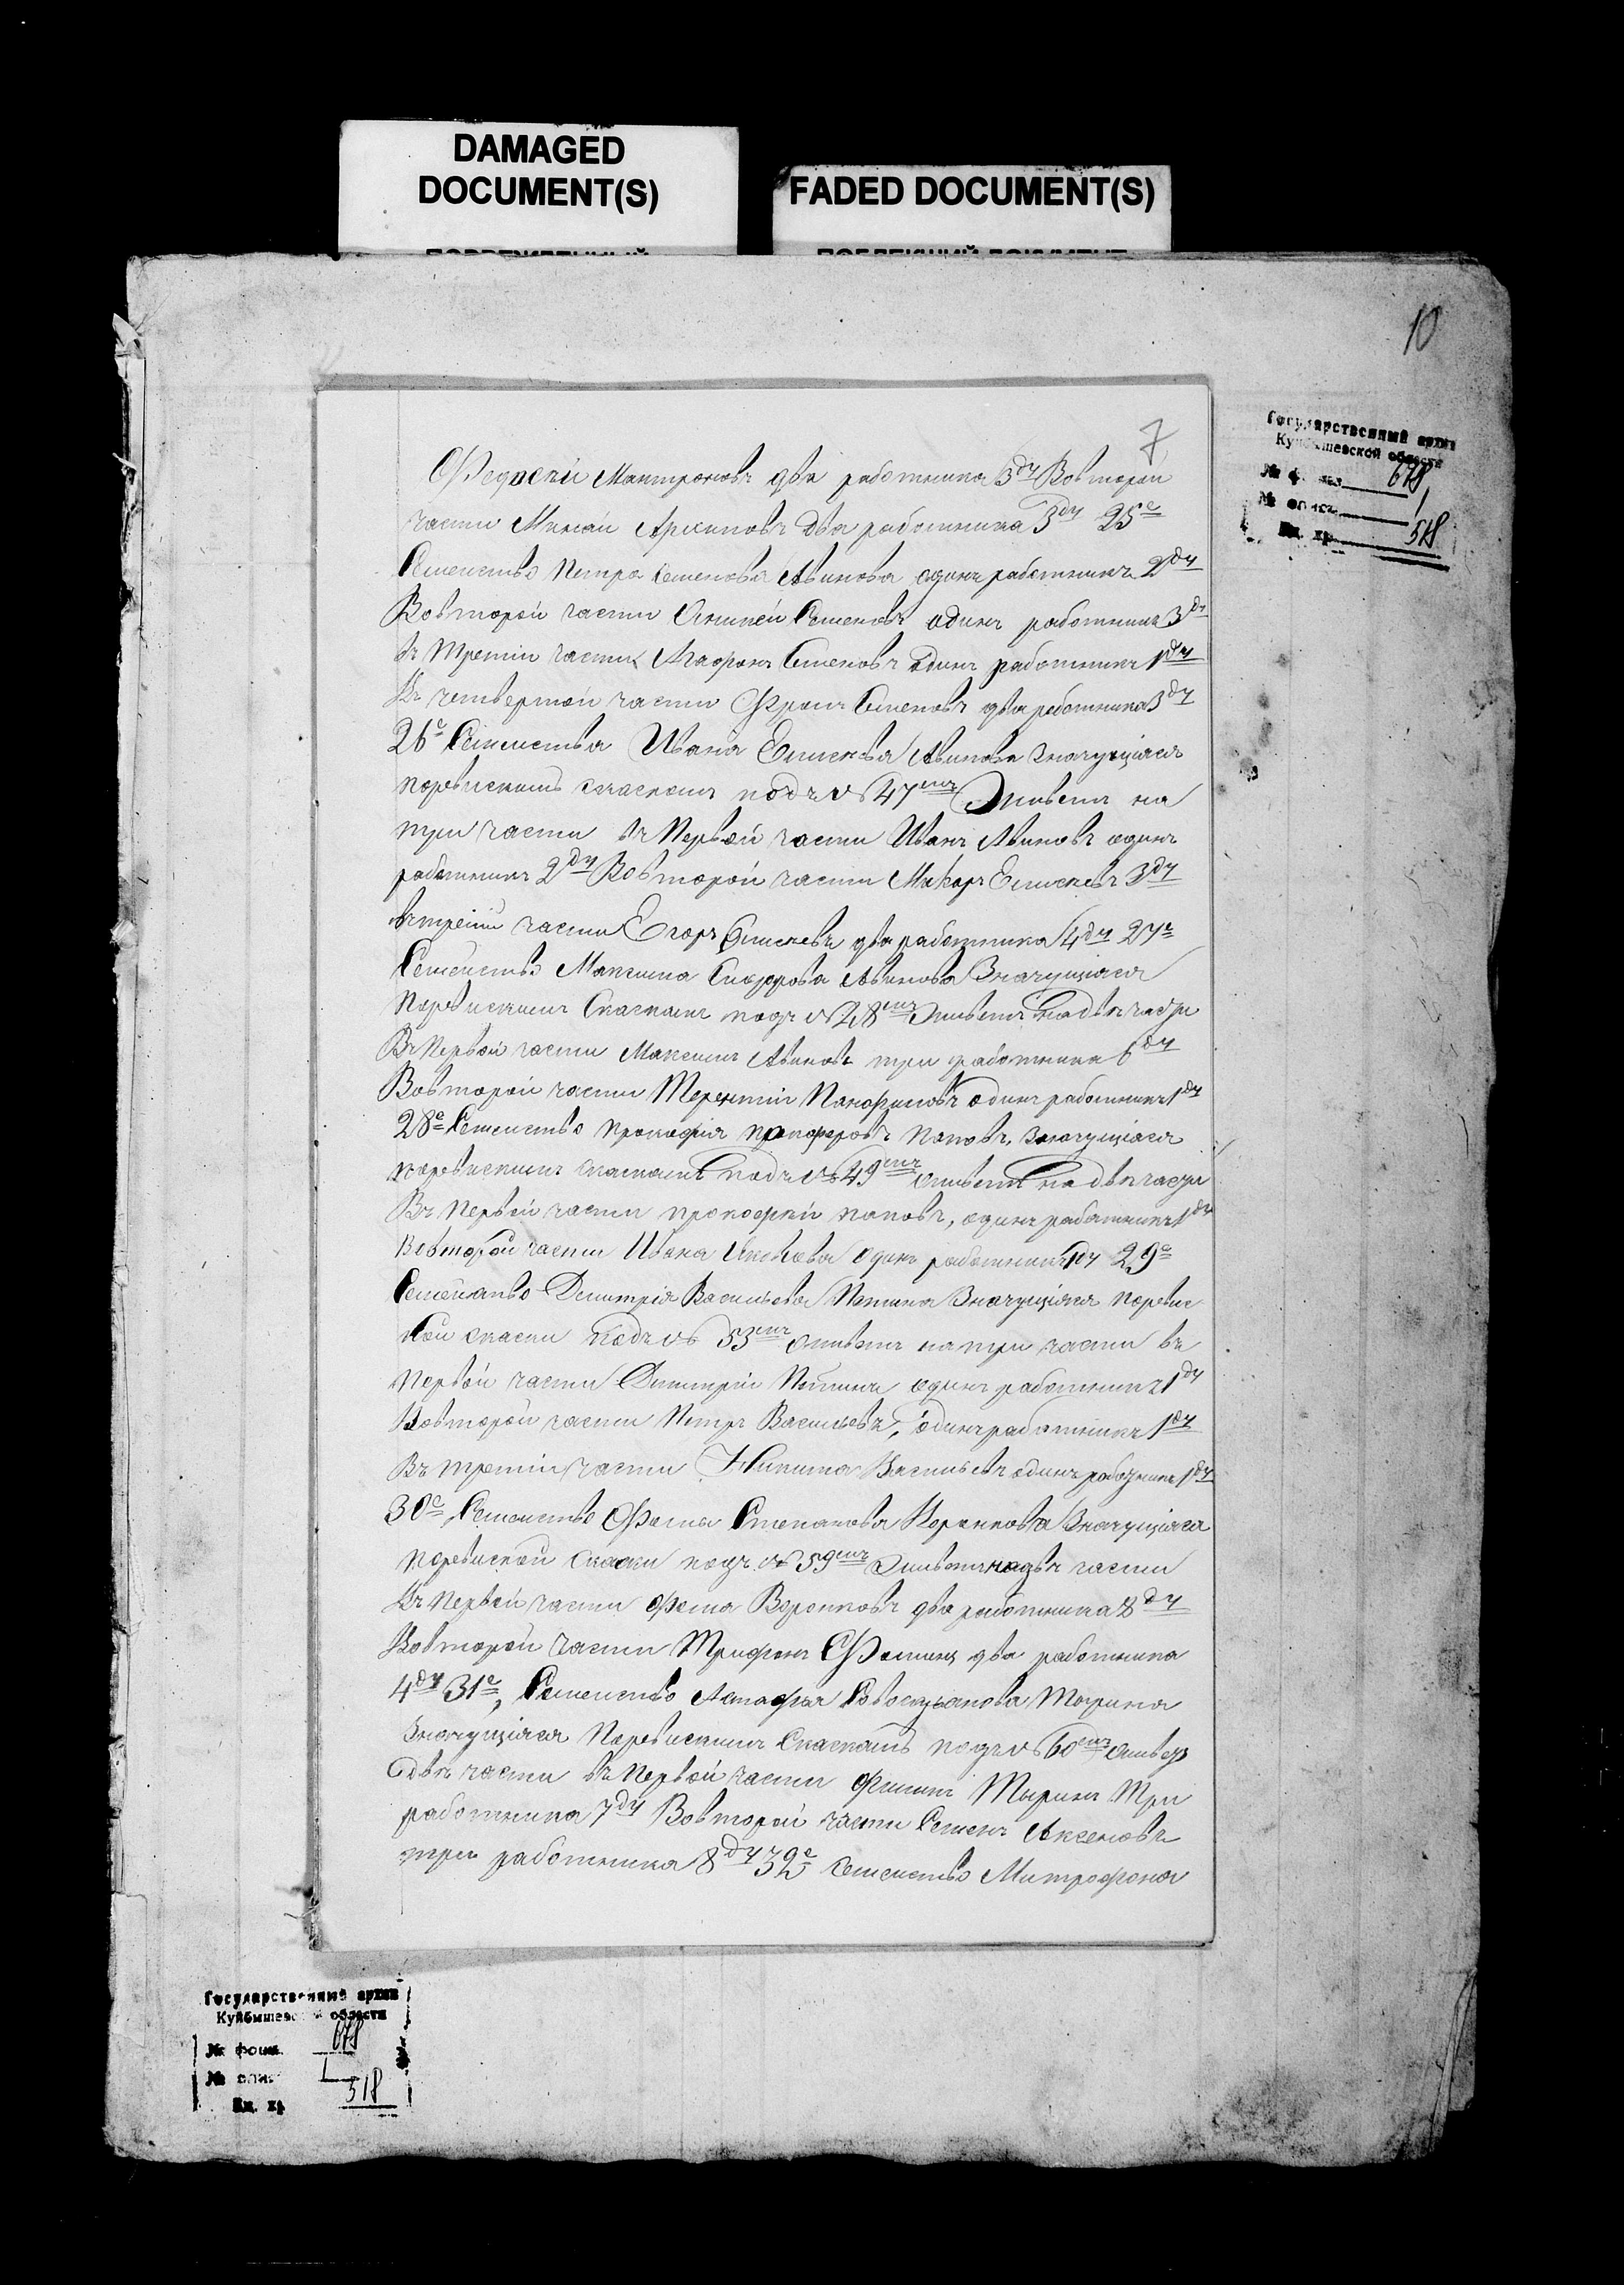 DAMAGED
DOCUMENT(S)
FADED DOCUMENT(S)
10
Государственный архив
Куйбышевской области
№ фонд. 678
№ опис. 1
Ед. хр. 518
7
Федосей Мантроновъ два работника 3ду Вовторой
части Минай Архиповъ два работника 3ду 25е
Семейство Петра Семенова Авинова одинъ работникъ 2ду
Вовторой части Аникей Семеновъ одинъ работникъ 3ду
въ третiй части Агафонъ Семеновъ одинъ работникъ 1ду
Въ четвертой части Фролъ Семеновъ два работника 3ду
26е Семейства Ивана Елисеева Авинова значущiяся
поревискимъ скаскамъ подъ № 47емъ Живетъ на
три части въ Первой части Иванъ Авиновъ одинъ
работникъ 2ду Вовторой части Макаръ Елисеевъ 3ду
втретiй части Егоръ Елисеевъ два работника 4ду 27е
Семейство Максима Сидорова Авинова Значущiяся
Поревискимъ Скаскамъ подъ № 28емъ Живетъ надвѣ части
Въ Первой части Максимъ Авиновъ три работника 6ду
Вовторой части Терентiй Панфиловъ одинъ работникъ 1ду
28е Семейство Прокофiя Поповъ, значущiяся
поревискимъ скаскамъ подъ № 49емъ живетъ надвѣ части
Въ Первой части прокофiй поповъ, одинъ работникъ 1ду
Вовторой части Ивана Яковлева одинъ работникъ 1ду 29е
Семейство Дмитрiя Васильева Питина Значущiяся поревис
кой скаски подъ № 53емъ живетъ натри части въ
Первой части Димитрiй Питинъ одинъ работникъ 1ду
Вовторой части Петръ Васильевъ, одинъ работникъ 1ду
Въ третiй части Никита Васильевъ одинъ работникъ 1ду
30е Семейство Фомы Степанова Воронкова Значущiяся
поревиской скаски подъ № 59емъ Живетъ надвѣ части
Въ Первой части Фома Воронковъ два работника 8ду
Вовторой части Трифонъ Фоминъ два работника
4ду 31е, Семейство Астафья Тырина
Значущiяся Поревискимъ Скаскамъ подъ № 60емъ живетъ
двѣ части въ Первой части Филипъ Тыринъ Три
работника 7ду Вовторой части Семенъ Аксеновъ
три работника 8ду 32е Семейство Митрофона
Государственный архив
Куйбышевской области
№ фонд. 678
№ опис. 1
Ед. хр. 518